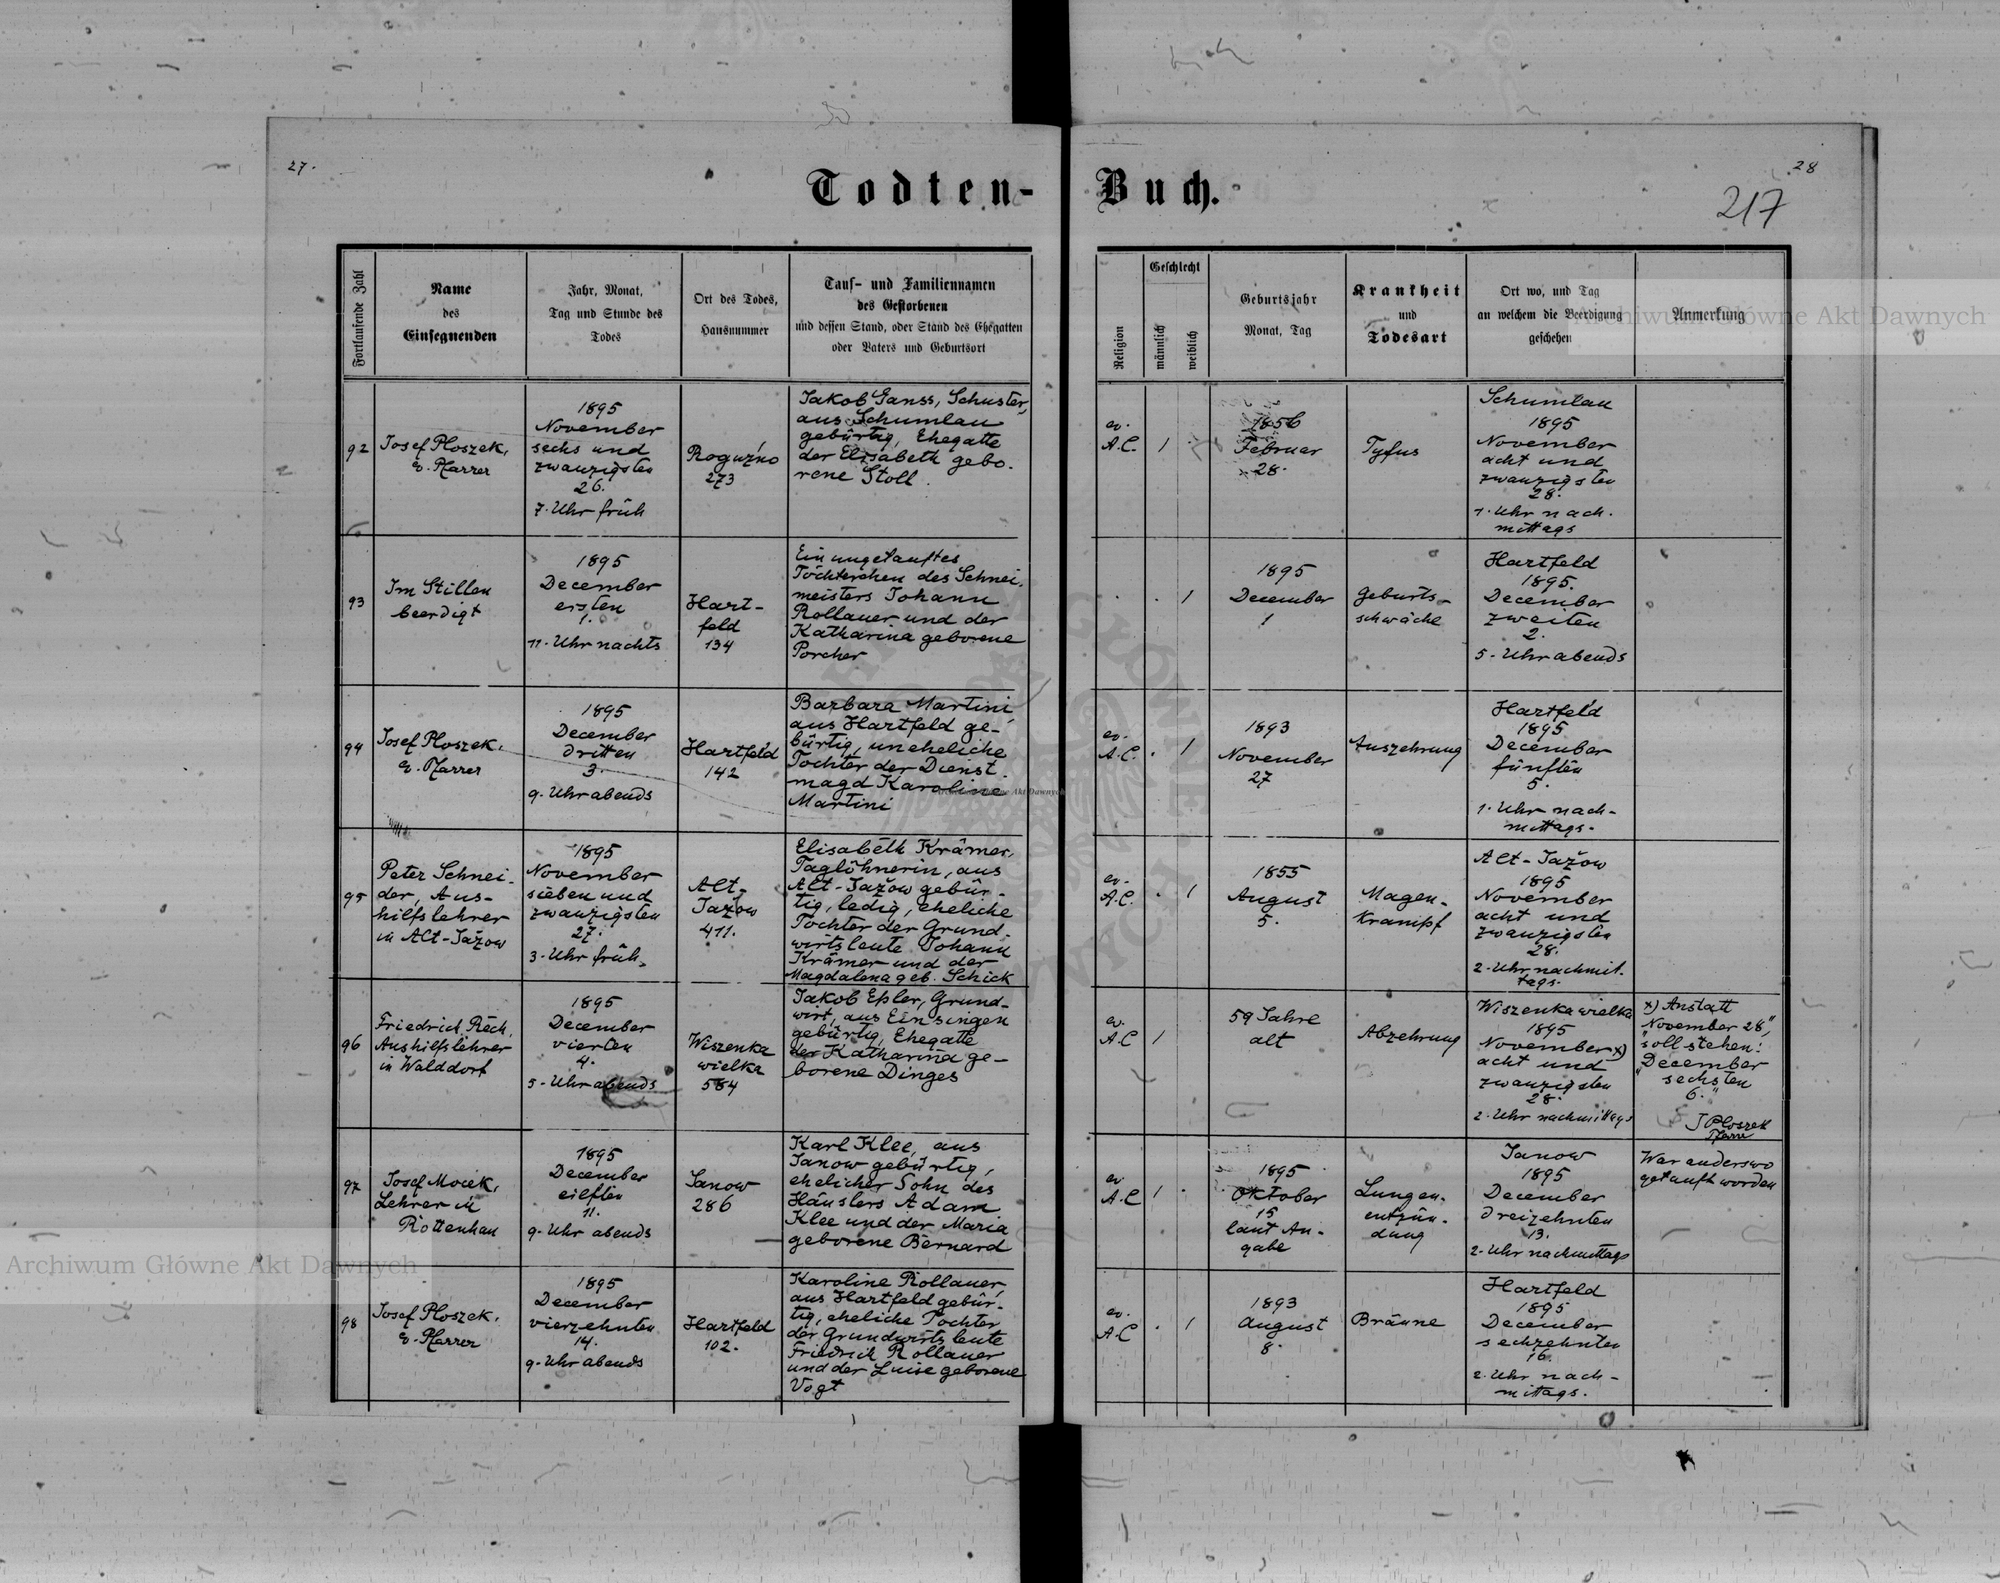 27.
28
217
Todten-Buch.
Fortlaufende Zahl
Name
des
Einsegnenden
Jahr, Monat,
Tag und Stunde des
Todes
Ort des Todes,
Hausnummer
Tauf- und Familiennamen
des Gestorbenen
und dessen Stand, oder Stand des Ehegatten
oder Vaters und Geburtsort
Religion
Geschlecht
männlich
weiblich
Geburtsjahr
Monat, Tag
Krankheit
und
Todesart
Ort wo, und Tag
an welchem die Beerdigung
geschehen
Anmerkung
92
Josef Ploszek,
ev. Pfarrer
1895
November
sechs und
zwanzigsten
26.
7. Uhr früh
Roguźno
273
Jakob Ganss, Schuster,
aus Schumlau
gebürtig, Ehegatte
der Elisabeth gebo-
rene Stoll.
ev.
A.C.
1
1856
Februar
28.
Tyfus
Schumlau
1895
November
acht und
zwanzigsten
28.
1. Uhr nach-
mittags
93
Im Stillen
beerdigt
1895
December
ersten
1.
11. Uhr nachts
Hart-
feld
134
Ein ungetauftes
Töchterchen des Schnei-
meisters Johann
Rollauer und der
Katharina geborene
Porcher
1
1895
December
1
Geburts-
schwäche
Hartfeld
1895.
December
zweiten
2.
5. Uhr abends
94
Josef Ploszek,
ev. Pfarrer
1895
December
dritten
3.
9. Uhr abends
Hartfeld
142
Barbara Martini
aus Hartfeld ge-
bürtig, uneheliche
Tochter der Dienst-
magd Karoline
Martini
ev.
A.C.
1
1893
November
27
Auszehrung
Hartfeld
1895
December
fünften
5.
1. Uhr nach-
mittags.
95
Peter Schnei-
der, Aus-
hilfslehrer
in Alt-Jažow
1895
November
sieben und
zwanzigsten
27.
3. Uhr früh.
Alt-
Jažow
411.
Elisabeth Krämer,
Taglöhnerin, aus
Alt-Jažow gebür-
tig, ledig, eheliche
Tochter der Grund-
wirtsleute Johann
Krämer und der
Magdalena geb. Schick
ev.
A.C.
1
1855
August
5.
Magen-
krampf
Alt-Jažow
1895
November
acht und
zwanzigsten
28.
2. Uhr nachmit-
tags.
96
Friedrich Rech,
Aushilfslehrer
in Walddorf
1895
December
vierten
4.
5. Uhr abends
Wiszenka
wielka
584
Jakob Eßler, Grund-
wirt, aus Einsingen
gebürtig, Ehegatte
der Katharina ge-
borene Dinges
ev.
A.C
1
59 Jahre
alt
Abzehrung
Wiszenka wielka
1895
November x)
acht und
zwanzigsten
28.
2. Uhr nachmittags
x) Anstatt
"November 28",
soll stehen:
"December
sechsten
6."
J Ploszek
Pfarrer
97
Josef Mociek,
Lehrer in
Rottenhan
1895
December
eilften
11.
9. Uhr abends
Janow
286
Karl Klee, aus
Janow gebürtig,
ehelicher Sohn des
Häuslers Adam
Klee und der Maria
geborene Bernard
ev
A.C
1
1895
Oktober
15
laut An-
gabe
Lungen-
entzün-
dung
Janow
1895
December
dreizehnten
13.
2. Uhr nachmittags
War anderswo
getauft worden
98
Josef Ploszek,
ev. Pfarrer
1895
December
vierzehnten
14.
9. Uhr abends
Hartfeld
102.
Karoline Rollauer,
aus Hartfeld gebür-
tig, eheliche Tochter
der Grundwirtsleute
Friedrich Rollauer
und der Luise geborene
Vogt
ev.
A.C
1
1893
August
8.
Bräune
Hartfeld
1895
December
sechzehnten
16.
2. Uhr nach-
mittags.
Archiwum Główne Akt Dawnych
Archiwum Główne Akt Dawnych